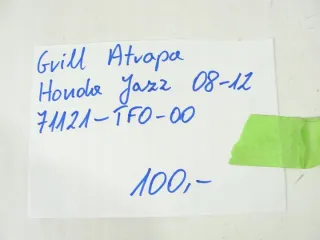 Grill Atrapa
Honda Jazz 08-12
71121-TF0-00
100,-